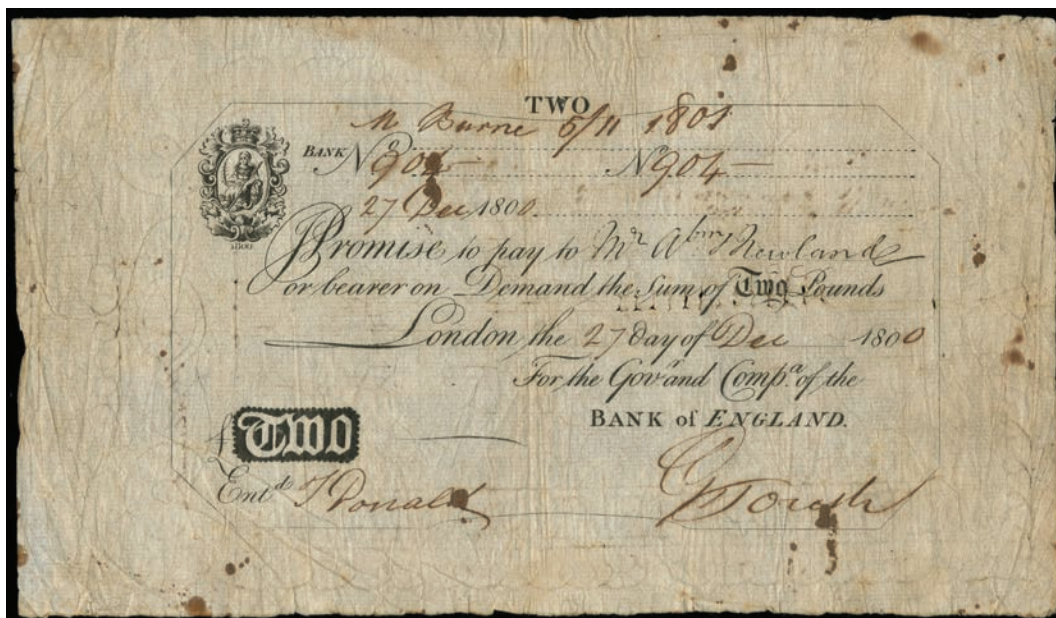 TWO
M Burne 5/11 1801
BANK No 904 — No 904 —
27 Dec 1800
I Promise to pay to Mr Abm Newland
or bearer on Demand the Sum of Two Pounds
London, the 27 day of Dec 1800
For the Govr and Compa of the
BANK of ENGLAND.
£ TWO
Entd T Donald